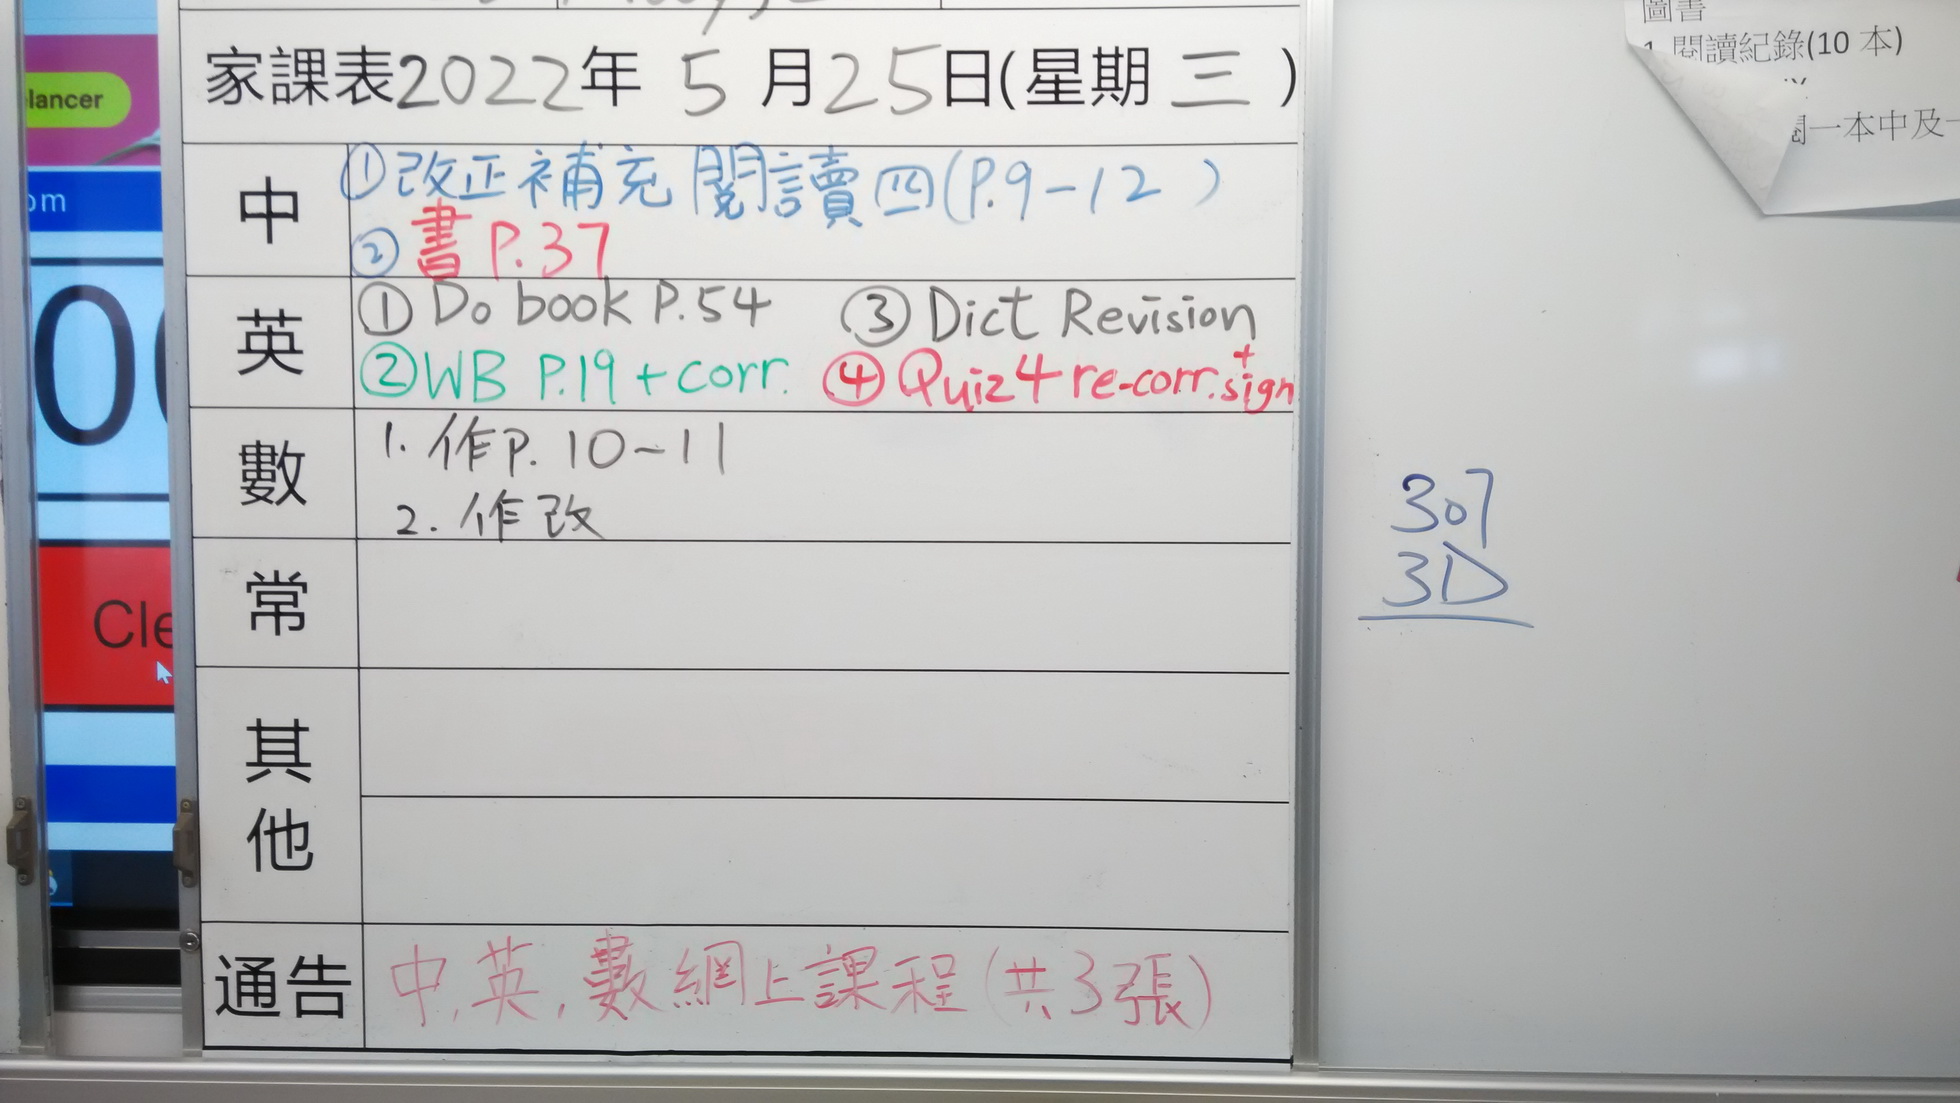 家課表2022年 5 月25日(星期 三 )
中
①改正補充閱讀四(P.9-12)
② 書 P.37
英
① Do book P.54 ③ Dict Revision
② WB P.19 + corr. ④ Quiz 4 re-corr. + sign
數
1. 作P. 10~11
2. 作改
常
其他
通告
中, 英, 數網上課程(共3張)
307
3D
圖書
1. 閱讀紀錄(10 本)
一本中及
lancer
om
Cle